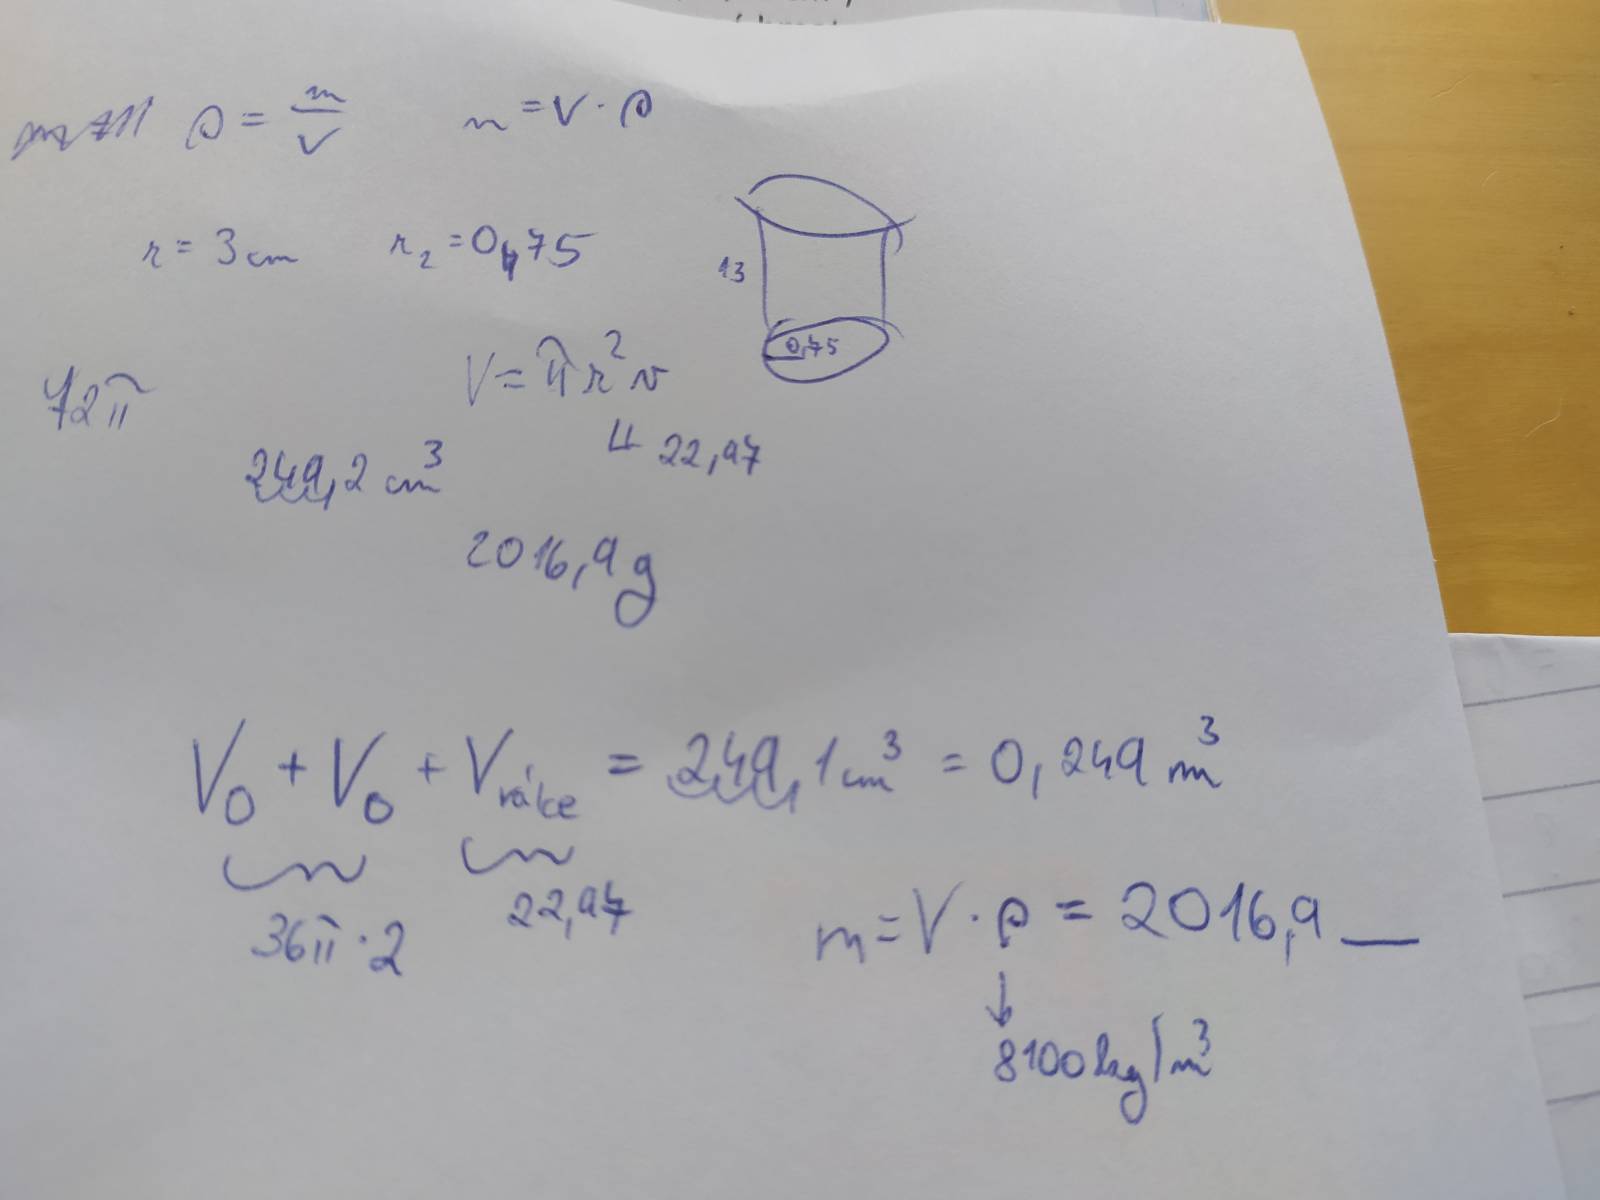 ρ = m/V m = V · ρ
r = 3 cm r₂ = 0,75
13
0,75
V = π r² v
72π
↳ 22,97
249,2 cm³
2016,9 g
V₀ + V₀ + Vválce = 249,1 cm³ = 0,249 m³
36π · 2 22,97
m = V · ρ = 2016,9 __
↓
8100 kg/m³